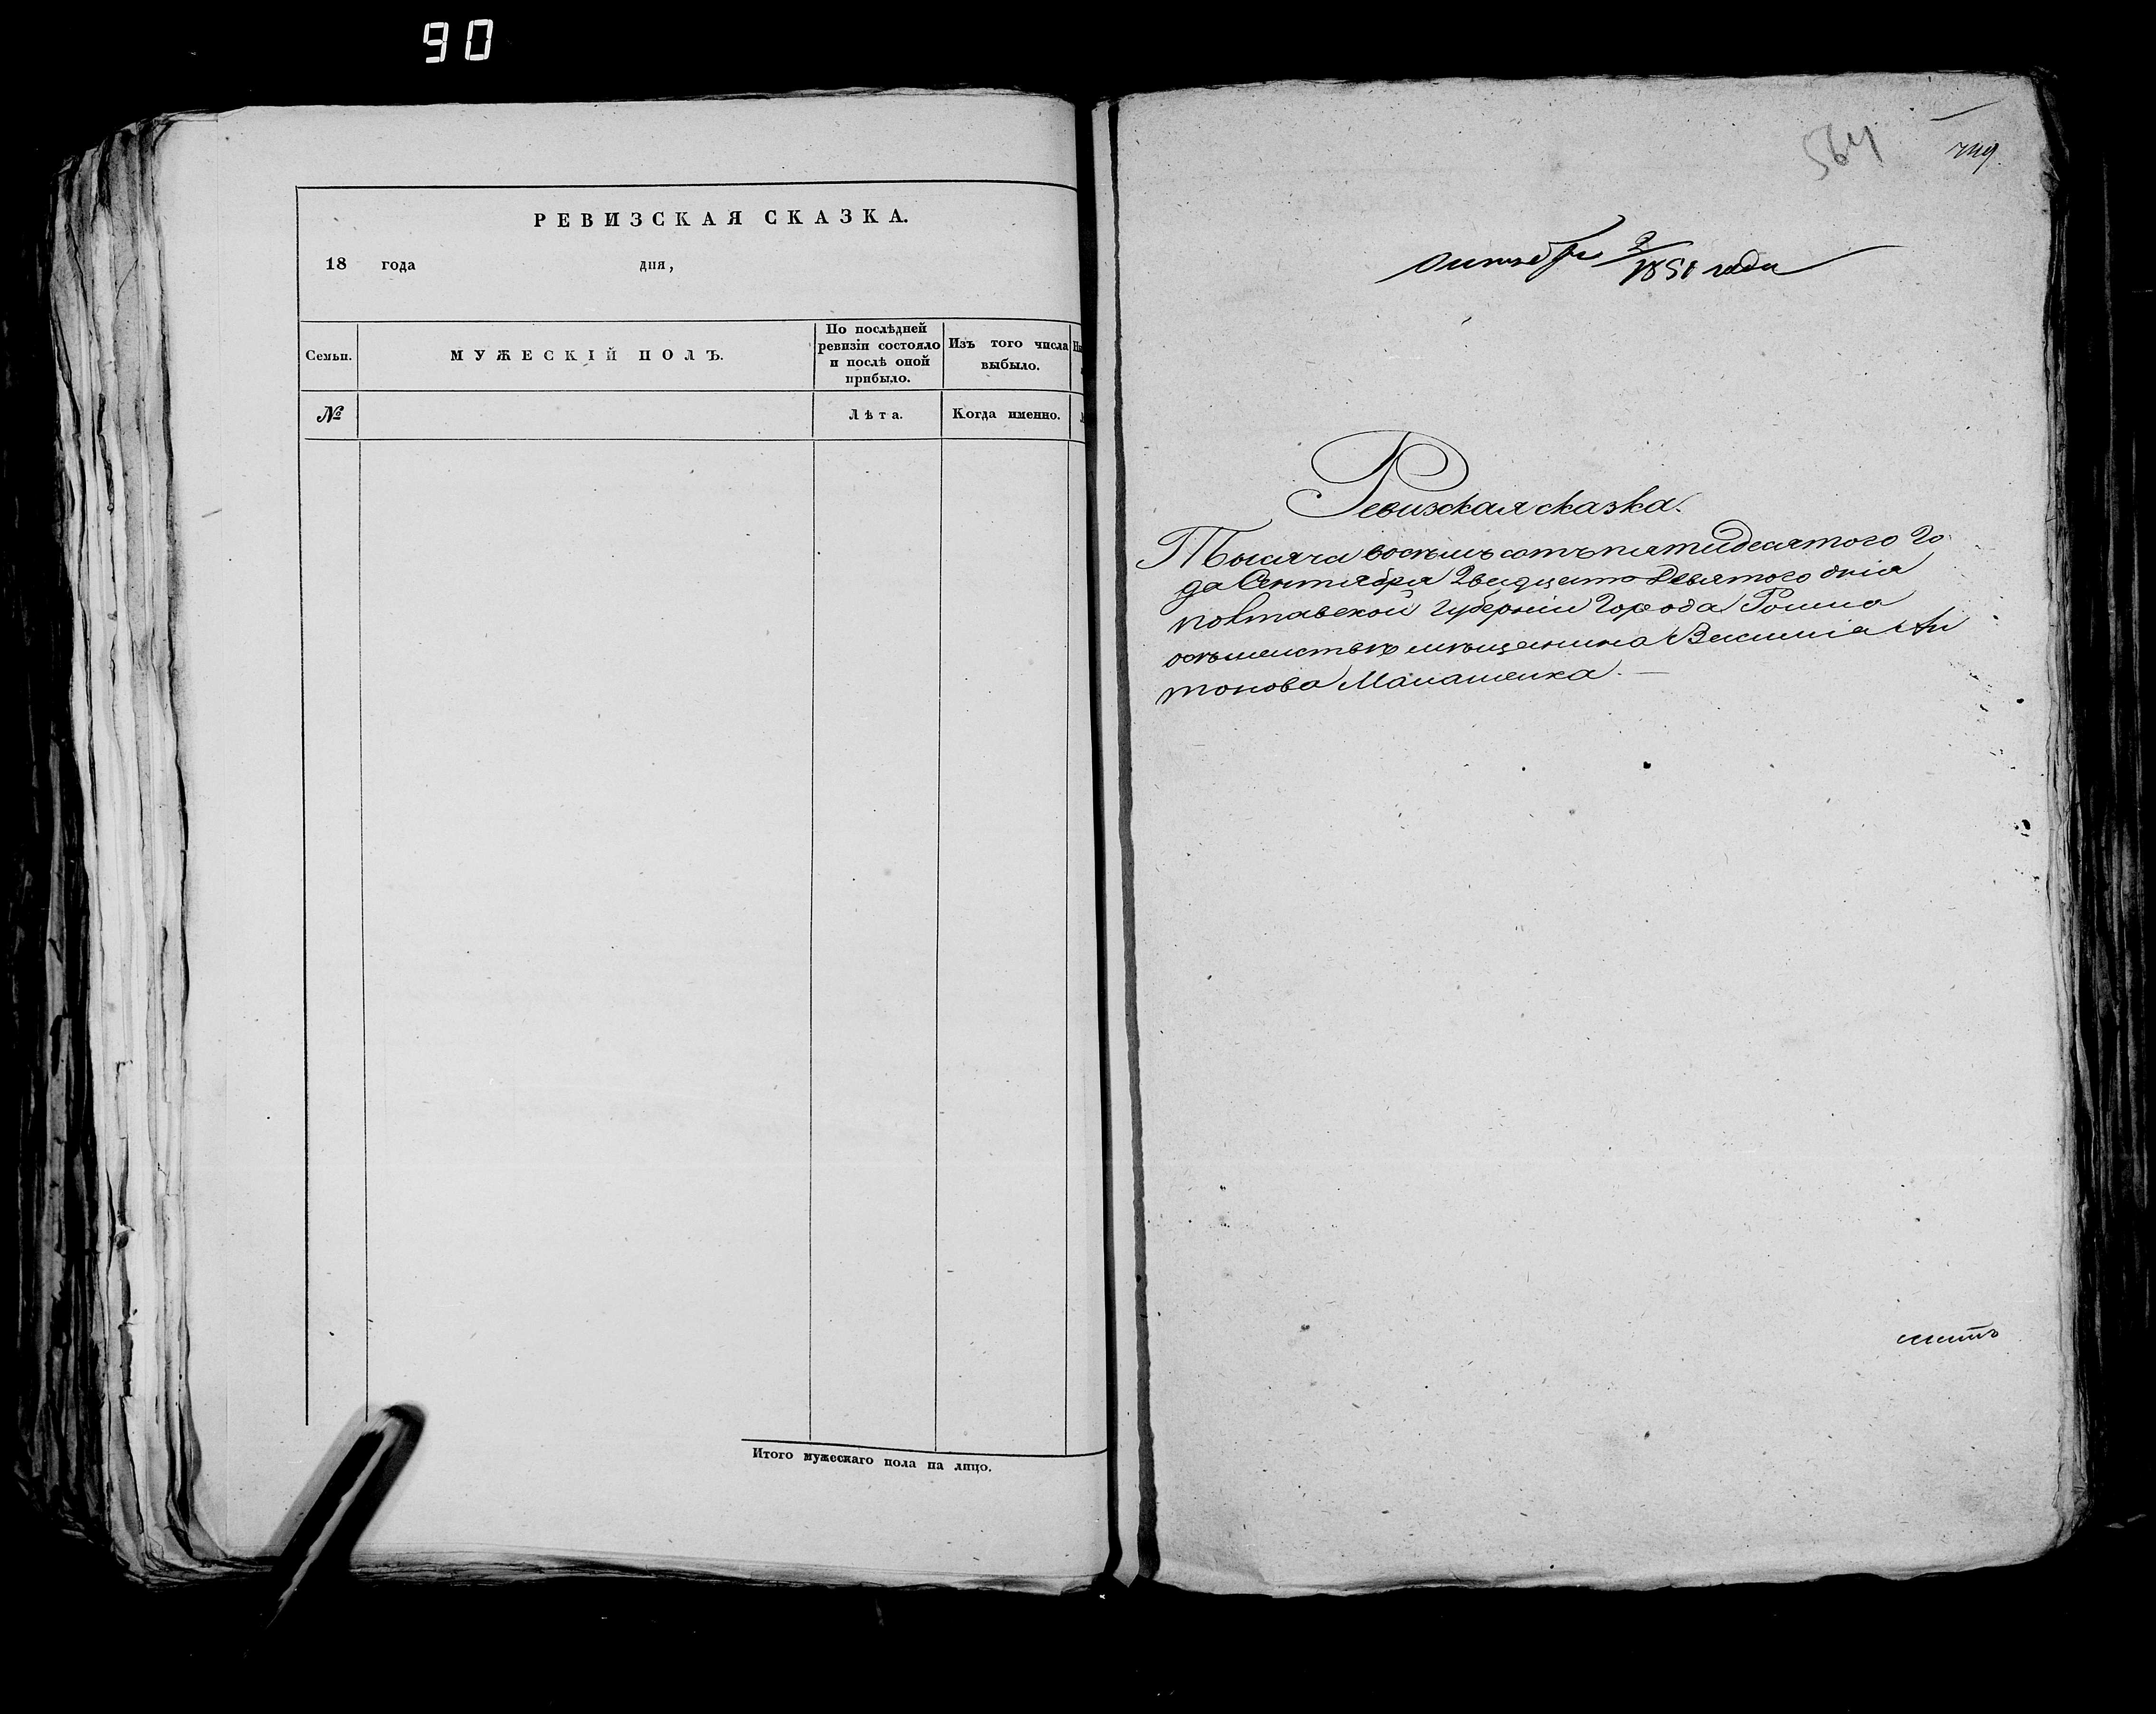 90
РЕВИЗСКАЯ СКАЗКА.
18 года дня,
Семьи.
МУЖЕСКІЙ ПОЛЪ.
По послѣдней
ревизіи состояло
и послѣ оной
прибыло.
Изъ того числа
выбыло.
№
Лѣта.
Когда именно.
Итого мужескаго пола на лицо.
564
октября 2/1851 года
Ревизская сказка.
Тысяча восемь сотъ пятидесятого го
да Сентября двадцать девятого дня
полтавской губерніи города Ромна
о семействѣ мещанина Василія Ан
тонова